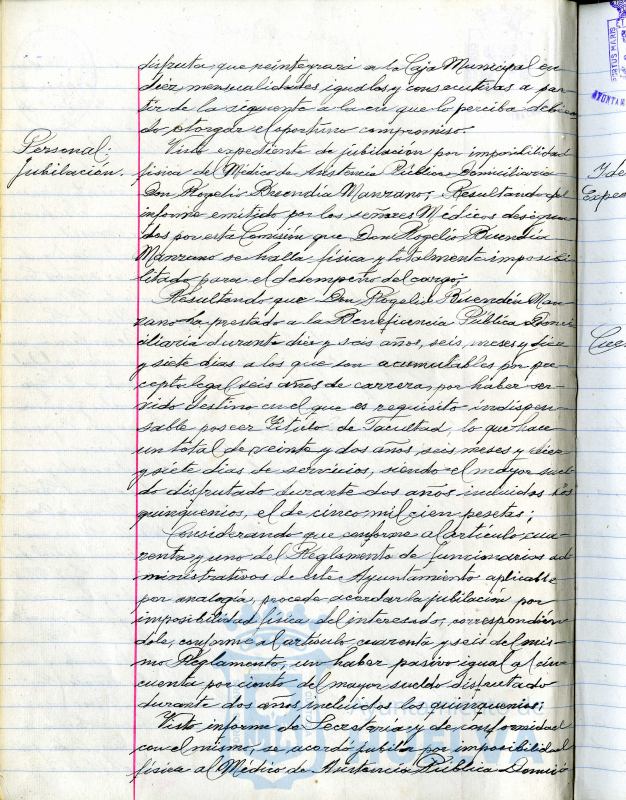 disfruta, que reintegrará a la Caja Municipal en
diez mensualidades iguales y consecutivas a par-
tir de la siguiente a la en que lo perciba debien-
do otorgar el oportuno compromiso.
Personal:
Jubilación.
Visto expediente de jubilación por imposibilidad
física del Médico de Asistencia Pública Domiciliaria
Don Rogelio Buendía Manzano; Resultando del
informe emitido por los señores Médicos designa-
dos por esta Comisión que Don Rogelio Buendía
Manzano se halla física y totalmente imposibi-
litado para el desempeño del cargo;
Resultando que Don Rogelio Buendía Man-
zano ha prestado a la Beneficencia Pública Domi-
ciliaria durante diez y seis años, seis meses y diez
y siete dias a los que son acumulables por pre-
cepto legal seis años de carrera, por haber ser-
vido destino en el que es requisito indispen-
sable poseer Título de Facultad, lo que hace
un total de veinte y dos años, seis meses y diez
y siete dias de servicios, siendo el mayor suel-
do disfrutado durante dos años incluidos los
quinquenios, el de cinco mil cien pesetas;
Considerando que conforme al artículo cua-
renta y uno del Reglamento de funcionarios ad-
ministrativos de este Ayuntamiento aplicable
por analogía, procede acordar la jubilación por
imposibilidad física del interesado, correspondién-
dole, conforme al artículo cuarenta y seis del mis-
mo Reglamento, un haber pasivo igual al cin-
cuenta por ciento del mayor sueldo disfrutado
durante dos años incluidos los quinquenios;
Visto informe de Secretaría y de conformidad
con el mismo, se acordó jubilar por imposibilidad
física al Médico de Asistencia Pública Domici-
Y de
Exped
HUELVA